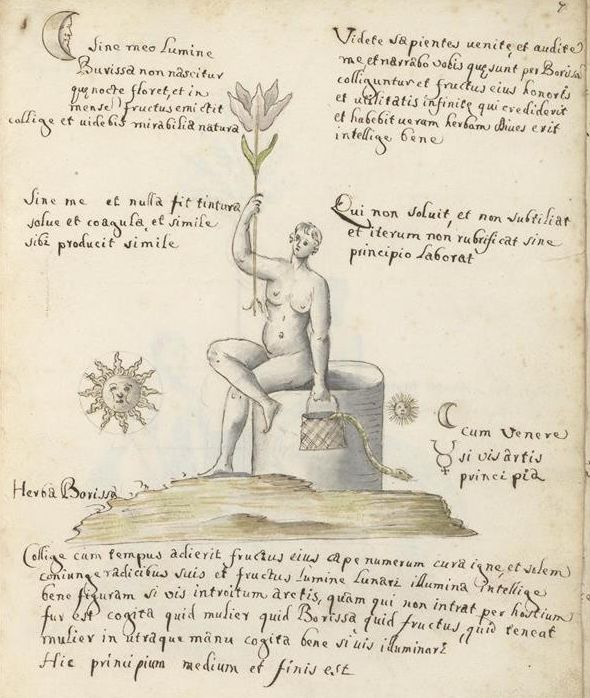 7
Sine meo Lumine
Burissa non nascitur
quæ nocte floret, et in
mense fructus emictit
collige et uidebis mirabilia natura
Videte sapientes uenite, et audite
me, et narrabo uobis quę sunt per Borissa
colliguntur et fructus eius honoris
et utilitatis infinite qui crediderit
et habebit ueram herbam Diues erit
intellige bene
Sine me et nulla fit tintura
solue et coagula, et simile
sibi producit simile
Qui non soluit, et non subtiliat
et iterum non rubrificat sine
principio laborat
cum Venere
si uis artis
principia
Herba Borissa
Collige cum tempus adierit fructus eius cape numerum cura igne, et solem
coniunge radicibus suis et fructus Lumine Lunari illumina intellige
bene figuram si uis introitum arctis, quam qui non intrat per hostium
fur est cogita quid mulier quid Borissa quid fructus, quid teneat
mulier in utraque manu cogita bene si uis illuminari
Hic principium medium et finis est